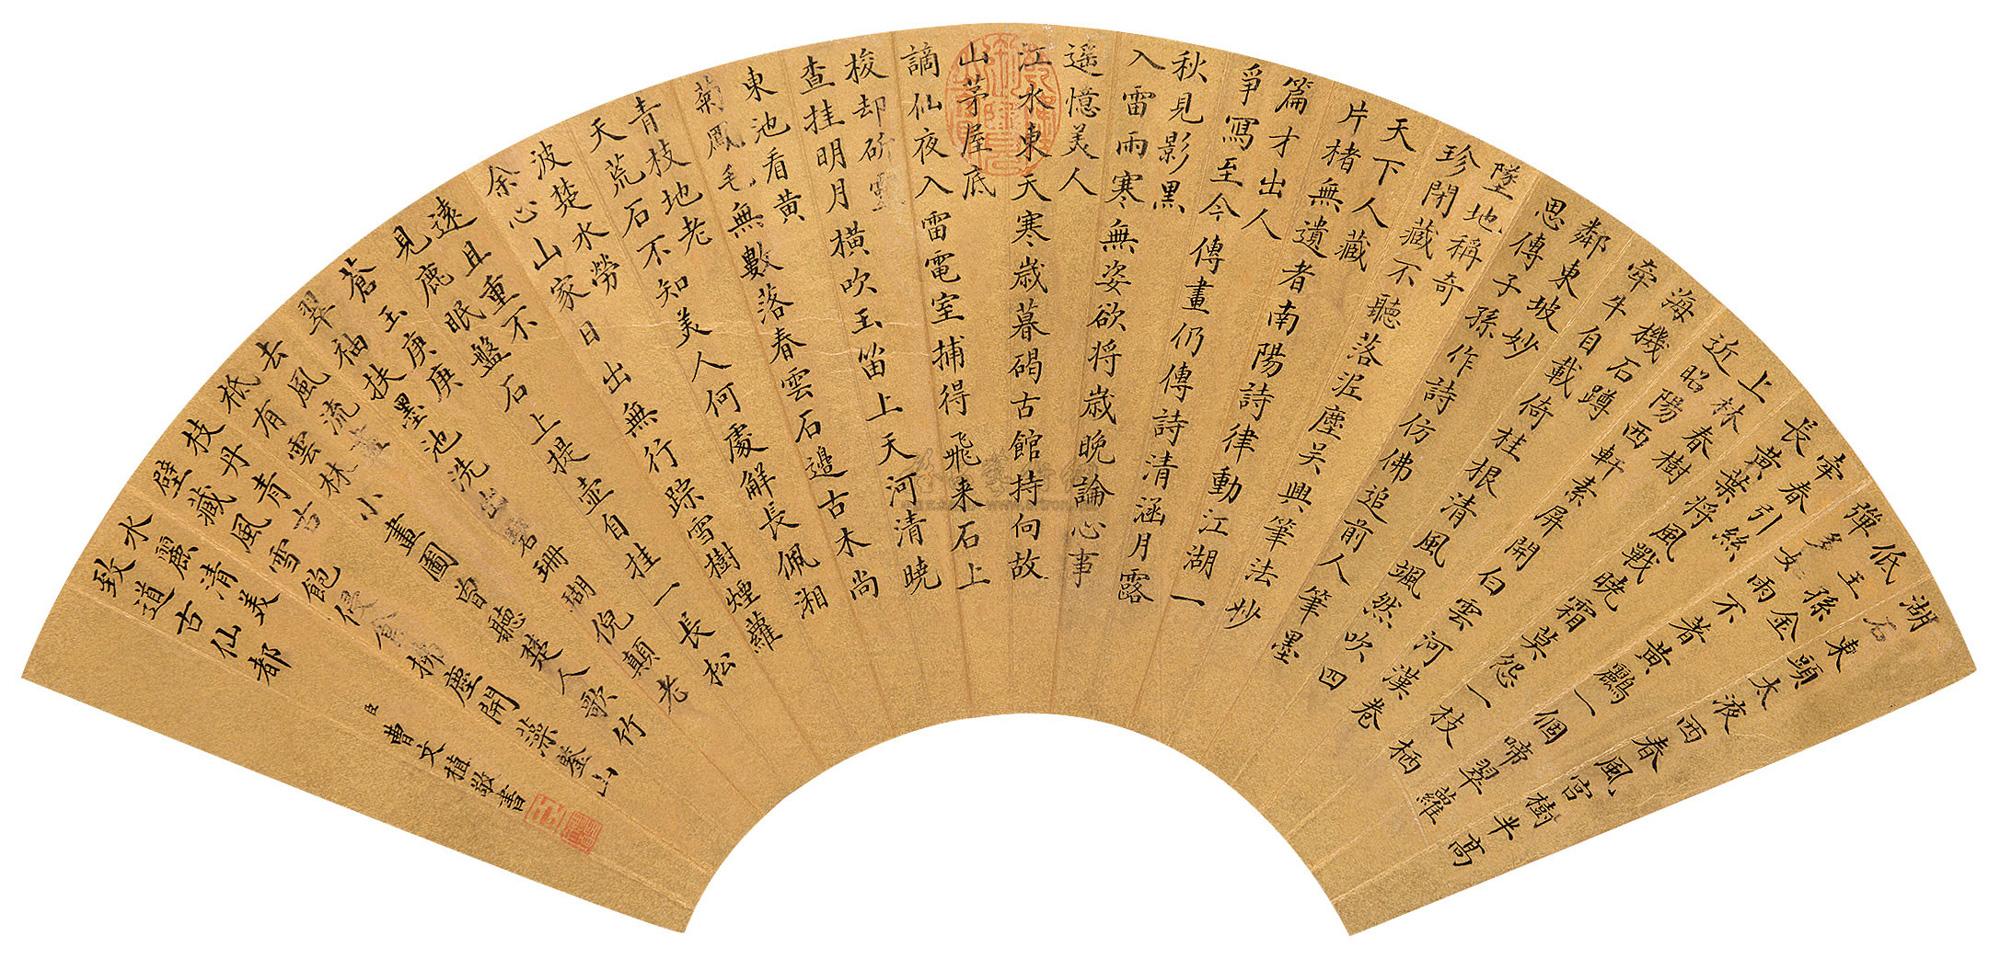 湖石東頭太液西春風宮樹半高
低王孫金
彈多如雨不著黃鸝一個啼翠蘿
牽春引絲
長黃葉將風戰曉霜莫怨一枝栖
上林春樹
近昭陽西軒素屏開白雲河漢卷
海機石蹲
牽牛自載倚桂根清風颯然吹四
鄰東坡妙
思傳子孫作詩仿佛追前人筆墨
墜地稱奇
珍閉藏不聽落泥塵吳興筆法妙
天下人藏
片楮無遺者南陽詩律動江湖一
篇才出人
爭寫至今傳畫仍傳詩清涵月露
秋見影黑
入雷雨寒無姿欲將歲晚論心事
遥憶美人
江水東天寒歲暮碣古館持向故
山茅屋底
謫仙夜入雷電室捕得飛来石上
梭却斫靈
查挂明月橫吹玉笛上天河清曉
東池看黃
菊鳳毛無數落春雲石邊古木尚
青枝地老
天荒石不知美人何處解長佩湘
波楚水勞
余心山家日出無行踪雪樹煙蘿
遠且重不
見鹿眠盤石上提壺自挂一長松
蒼玉庚庚
翠袖扶墨池洗出碧珊瑚倪顛老
去風流盡
柢有雲林小畫圖曾聽楚人歌竹
枝丹青古
壁藏風雪飽侵蝕柳塵開藻鑒山
水麗清美
致道古仙都
臣曹文埴敬書